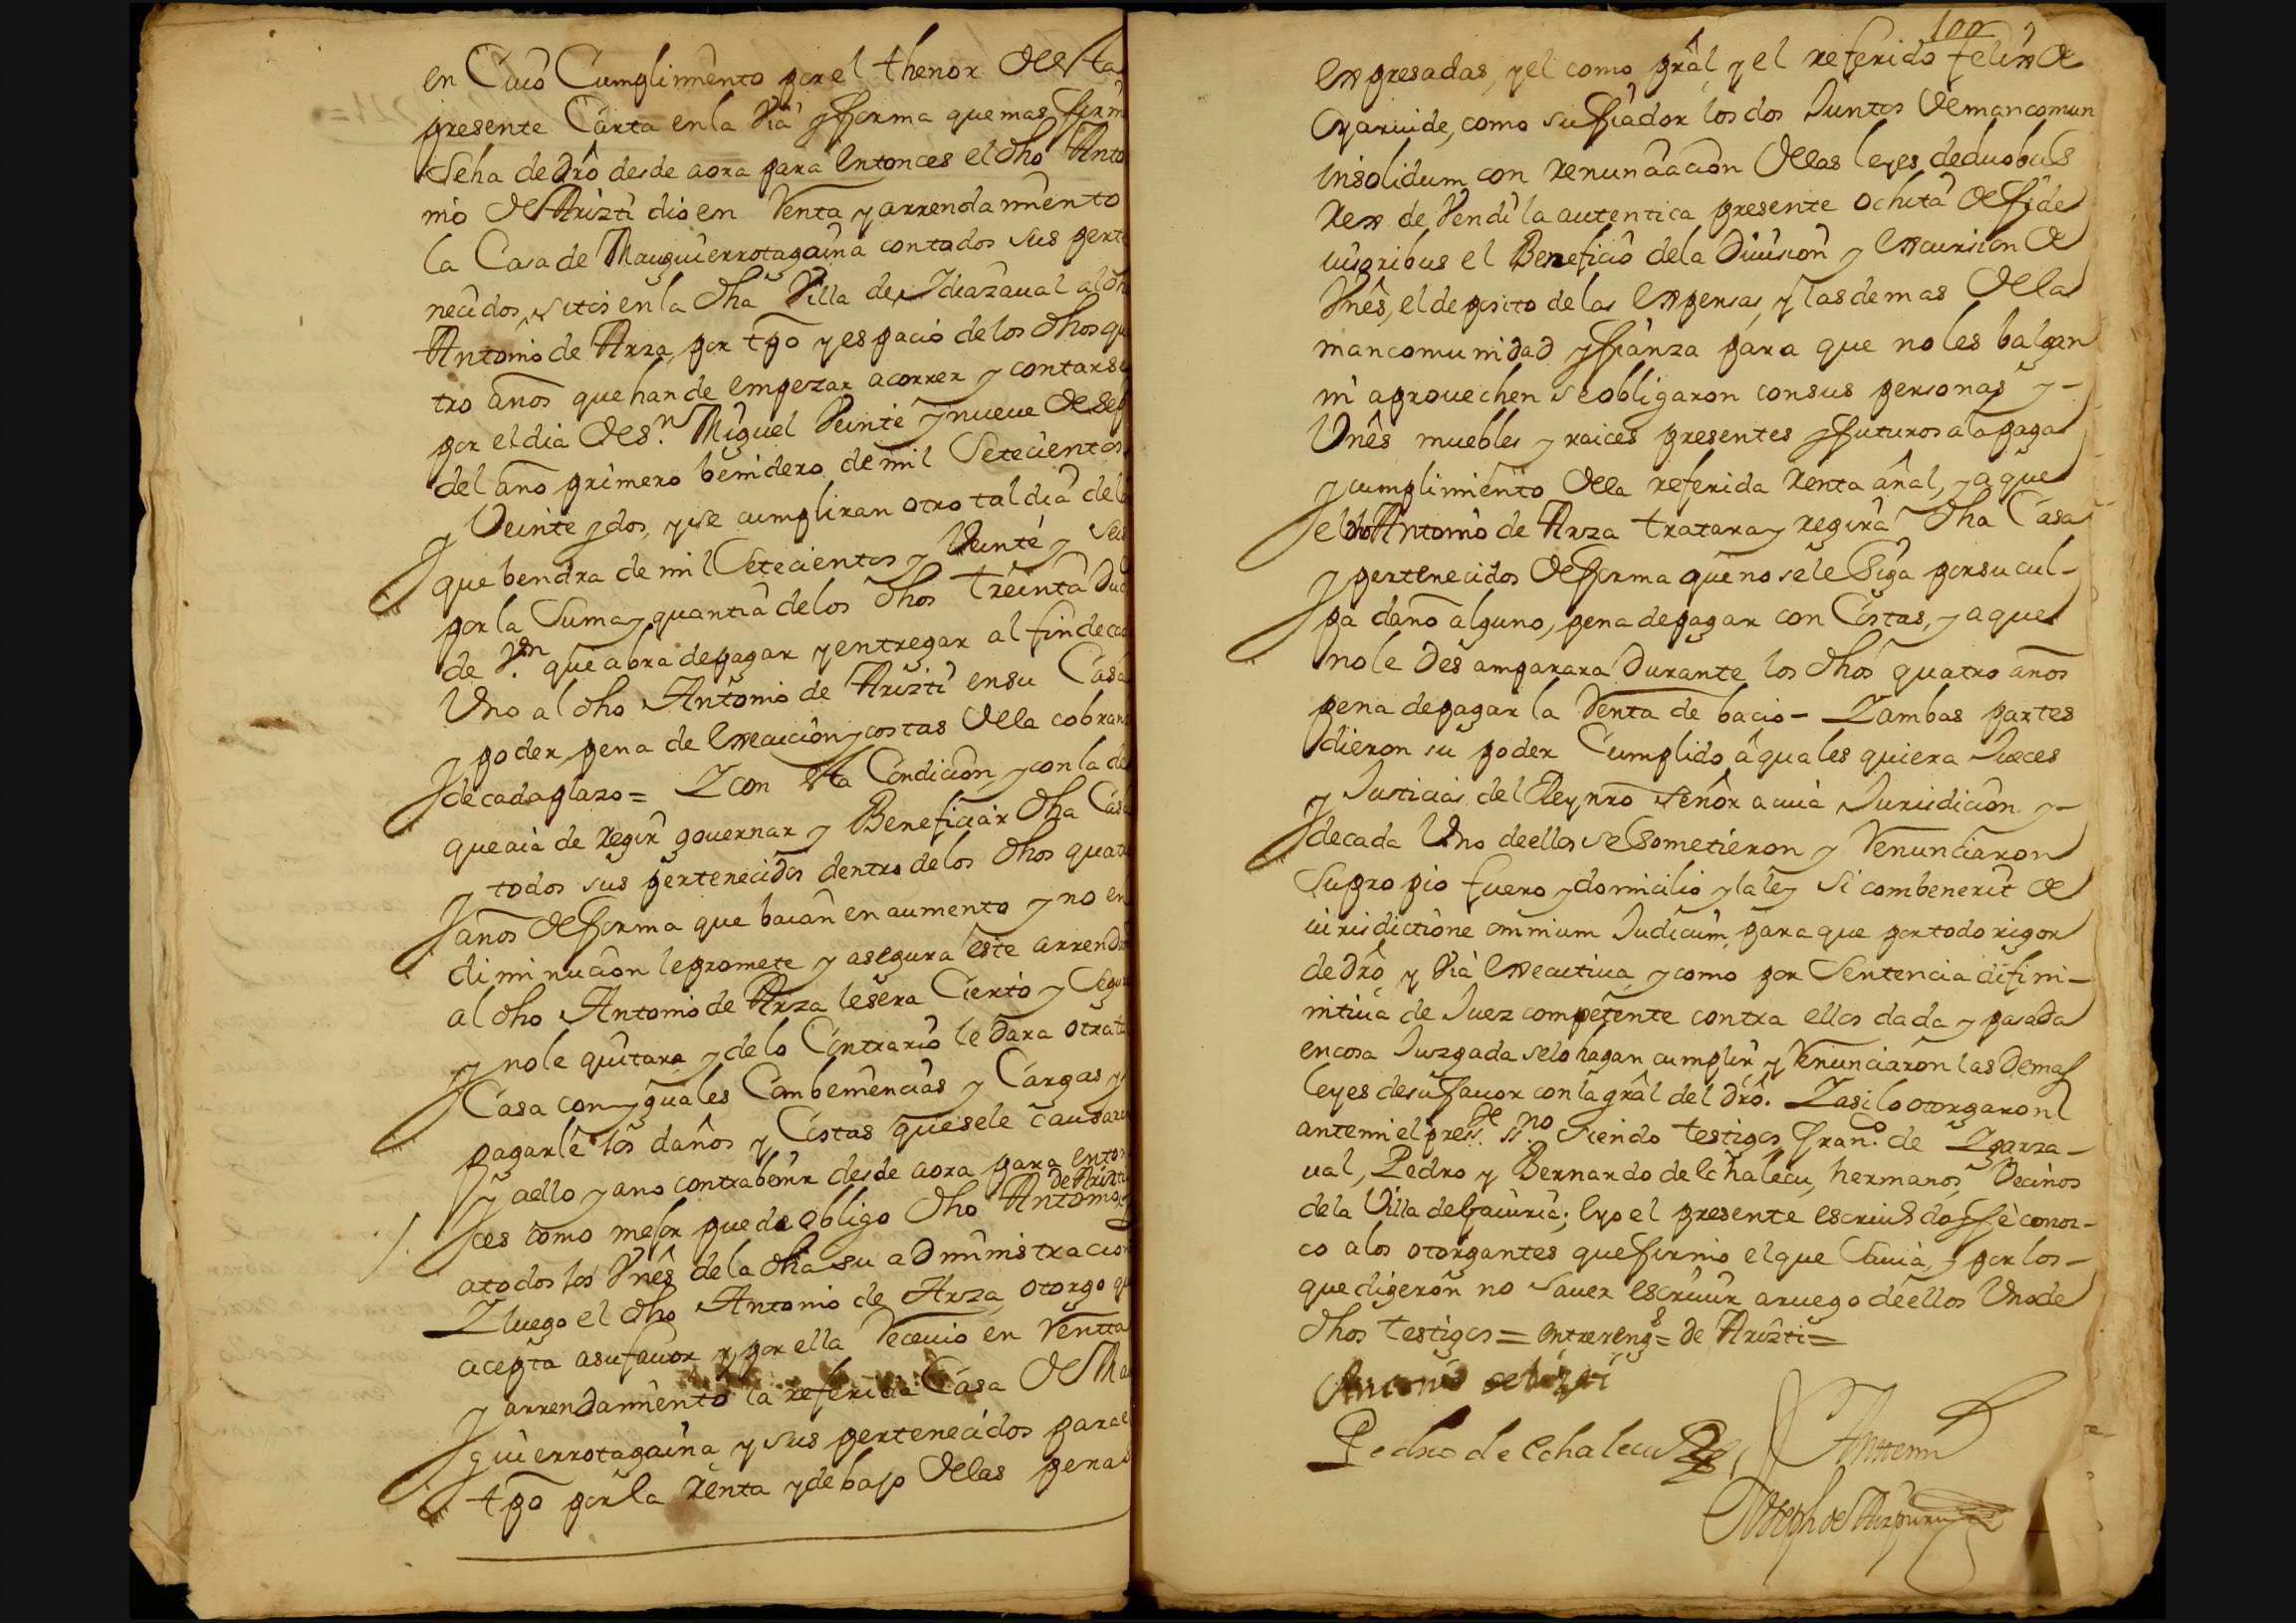 en Cuio Cumplimiento por el thenor de esta
presente Carta en la Via y forma que mas firm
se ha de dr̃o desde aora para entonces el dho Anto
nio de Arizti dio en Renta y arrendamiento
la Casa de Mauguierrotagaina con todos sus perte
necidos, sitos en la dha Villa de Idiazaual al dh
Antonio de Arza, por tp̃o y espacio de los dhos qu
tro años que han de empezar a correr y contarse
por el dia de Sn. Miguel Veinte y nueue de Sep
del año primero benidero de mil Setecientos
y Veinte y dos, y se cumpliran otro tal dia del
que bendra de mil Setecientos y Veinte y Seis
por la Suma y quantia de los dhos treinta Duc
de Vn. que abra de pagar y entregar al fin de cad
Vno al dho Antonio de Arizti en su Casa
y poder, pena de execucion y costas de la cobranz
de cada plazo = Y con esta Condicion, y con la de
que aia de regir gouernar y Beneficiar dha Casa
y todos sus pertenecidos dentro de los dhos quatr
años de forma que baian en aumento y no en
diminucion le promete y asegura este arrendam
al dho Antonio de Arza le sera Cierto y Segur
y no le quitara y de lo Contrario le dara otra tal
Casa con yguales Combeniencias y Cargas y
pagarle los daños y Costas que se le causaren
y a ello y a no contrabenir desde aora para enton
de Arizti
ces como mejor puede obligo dho Antonio
a todos los Vnes de la dha su administracion
Y luego el dho Antonio de Arza, otorgo qu
acepta a su fauor y por ella Receuio en Rentta
y arrendamiento la referida Casa de Mau
guierrotagaina y sus pertenecidos para el
tp̃o por la Renta y debajo de las penas
100
expresadas, y el como pral, y el referido felix de
Oyaruide, como su fiador los dos Juntos de mancomun
insolidum con renunciacion de las leyes de duobus
rex de Vendi la autentica presente ochita de fide
iusoribus el Beneficio de la Diuision y excursion de
Vnes, el deposito de las expensas, y las demas de la
mancomunidad y fianza para que no les balgan
ni aprouechen se obligaron con sus personas y -
Vnes muebles y raices presentes y futuros a la paga
y cumplimiento de la referida renta añal, y a que
el dho Antonio de Arza tratara y regira dha Casa
y pertenecidos de forma que no se le Siga por su cul-
pa daño alguno, pena de pagar con Costas, y a que
no le Desamparara Durante los dhos quatro años
pena de pagar la Renta de bacio - Y ambas partes
dieron su poder Cumplido a quales quiera Jueces
y Justicias del Rey nr̃o Señor a cuia Jurisdicion y -
de cada Vno de ellos se Sometieron y Renunciaron
su propio fuero y domicilio y la ley si combenerit de
iurisdictione omnium Judicum, para que por todo rigor
de dr̃o, y Via executiua, y como por Sentencia difini-
nitiua de Juez competente contra ellos dada y pasada
en cosa Juzgada se lo hagan cumplir y Renunciaron las Demas
leyes de su fauor con la gral del dr̃o. Y asi lo otorgaron
ante mi el presste. ssno. siendo testigos, Franco. de Ygarza-
ual, Pedro y Bernardo de Echalecu, hermanos, Vecinos
de la Villa de Gauiria; e yo el presente escriuo doy fè conoz-
co a los otorgantes que firmo el que Sauia, y por los -
que digeron no Sauer escriuir a ruego de ellos Vno de
dhos testigos = entrerengs = de Arizti =
Antonio de Arizti
Pedro de Echalecu
Ante mi
Joseph de Aizpuru